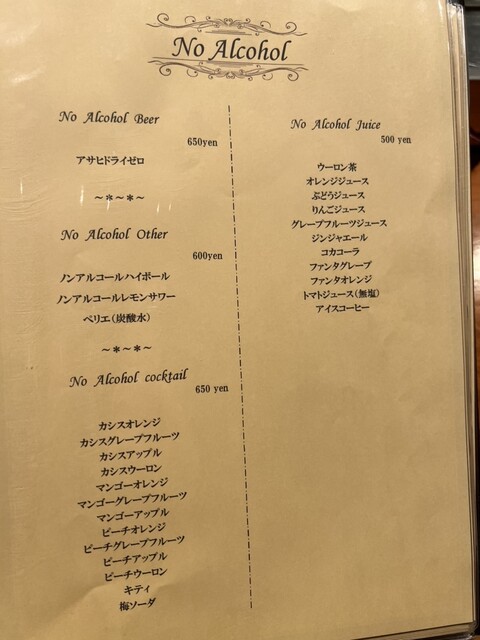 No Alcohol
No Alcohol Beer
650yen
アサヒドライゼロ
～＊～＊～
No Alcohol Other
600yen
ノンアルコールハイボール
ノンアルコールレモンサワー
ペリエ(炭酸水)
～＊～＊～
No Alcohol cocktail
650 yen
カシスオレンジ
カシスグレープフルーツ
カシスアップル
カシスウーロン
マンゴーオレンジ
マンゴーグレープフルーツ
マンゴーアップル
ピーチオレンジ
ピーチグレープフルーツ
ピーチアップル
ピーチウーロン
キティ
梅ソーダ
No Alcohol Juice
500 yen
ウーロン茶
オレンジジュース
ぶどうジュース
りんごジュース
グレープフルーツジュース
ジンジャエール
コカコーラ
ファンタグレープ
ファンタオレンジ
トマトジュース(無塩)
アイスコーヒー